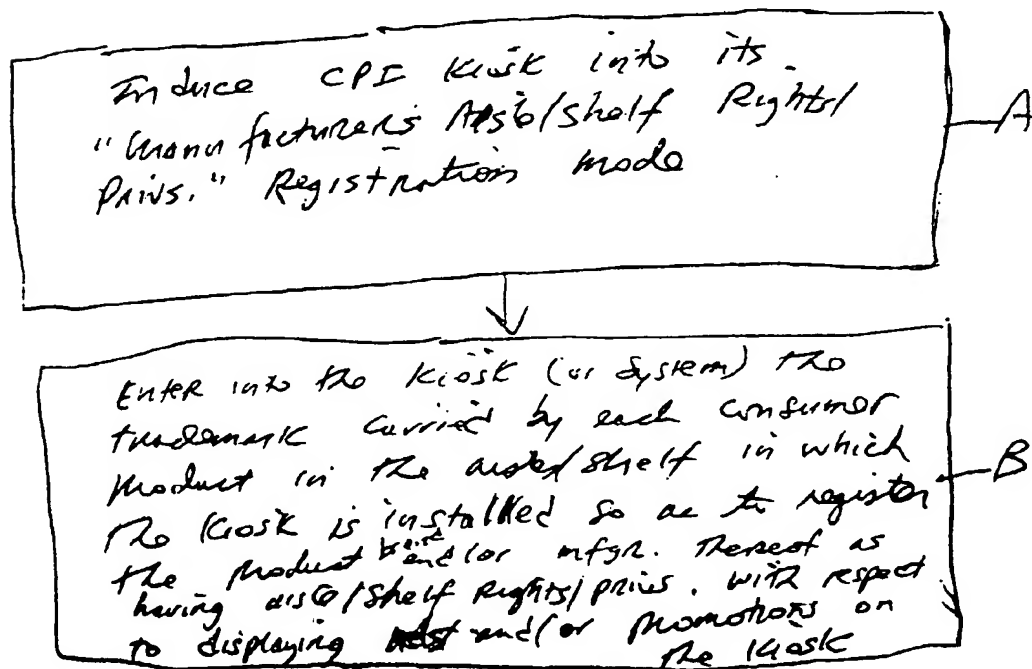 Induce CPI Kiosk into its
"Manufacturers Aisle/Shelf Rights/
Privs." Registration mode
A
Enter into the Kiosk (or System) the
trademark carried by each consumer
product in the aisle/shelf in which
the Kiosk is installed so as to register
the product brand and/or mfgr. thereof as
having aisle/shelf Rights/privs. with respect
to displaying and/or promotions on
the Kiosk
B